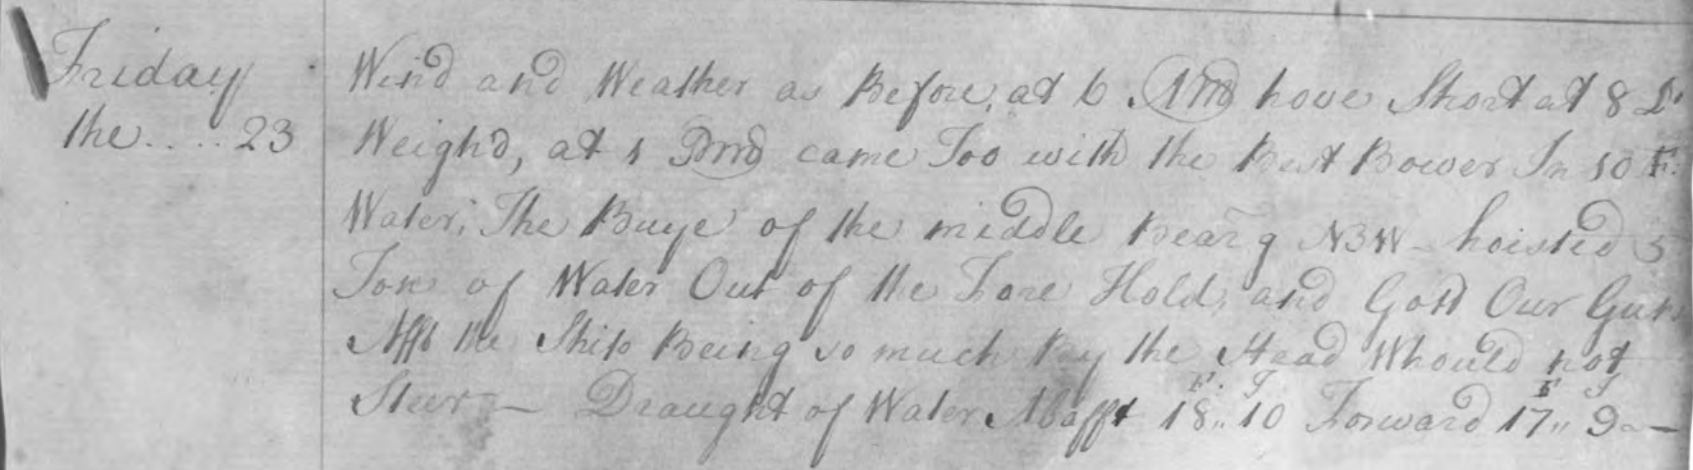 Friday
the .... 23
Wind and Weather as Before, at 6 AM hove Short at 8 Do
Weighd, at 1 PM came Too with the Best Bower In 10 F.
Water; The Buye of the middle bearg NBW - hoisted 5
Tons of Water Out of the Fore Hold, and Gott Our Guns
Afft the Ship Being so much by the Head Whould not
Steer — Draught of Water Abafft 18 F.,, 10 I Forward 17 F,, 9 I —